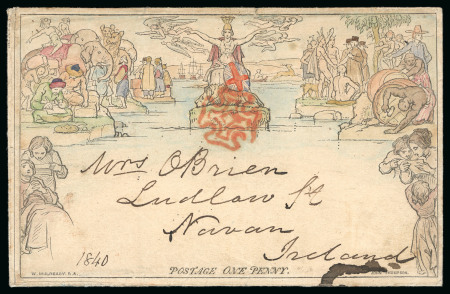 Mrs OBrien
Ludlow St
Navan
Ireland
1840
W. MULREADY. R.A.
POSTAGE ONE PENNY.
JOHN THOMPSON.